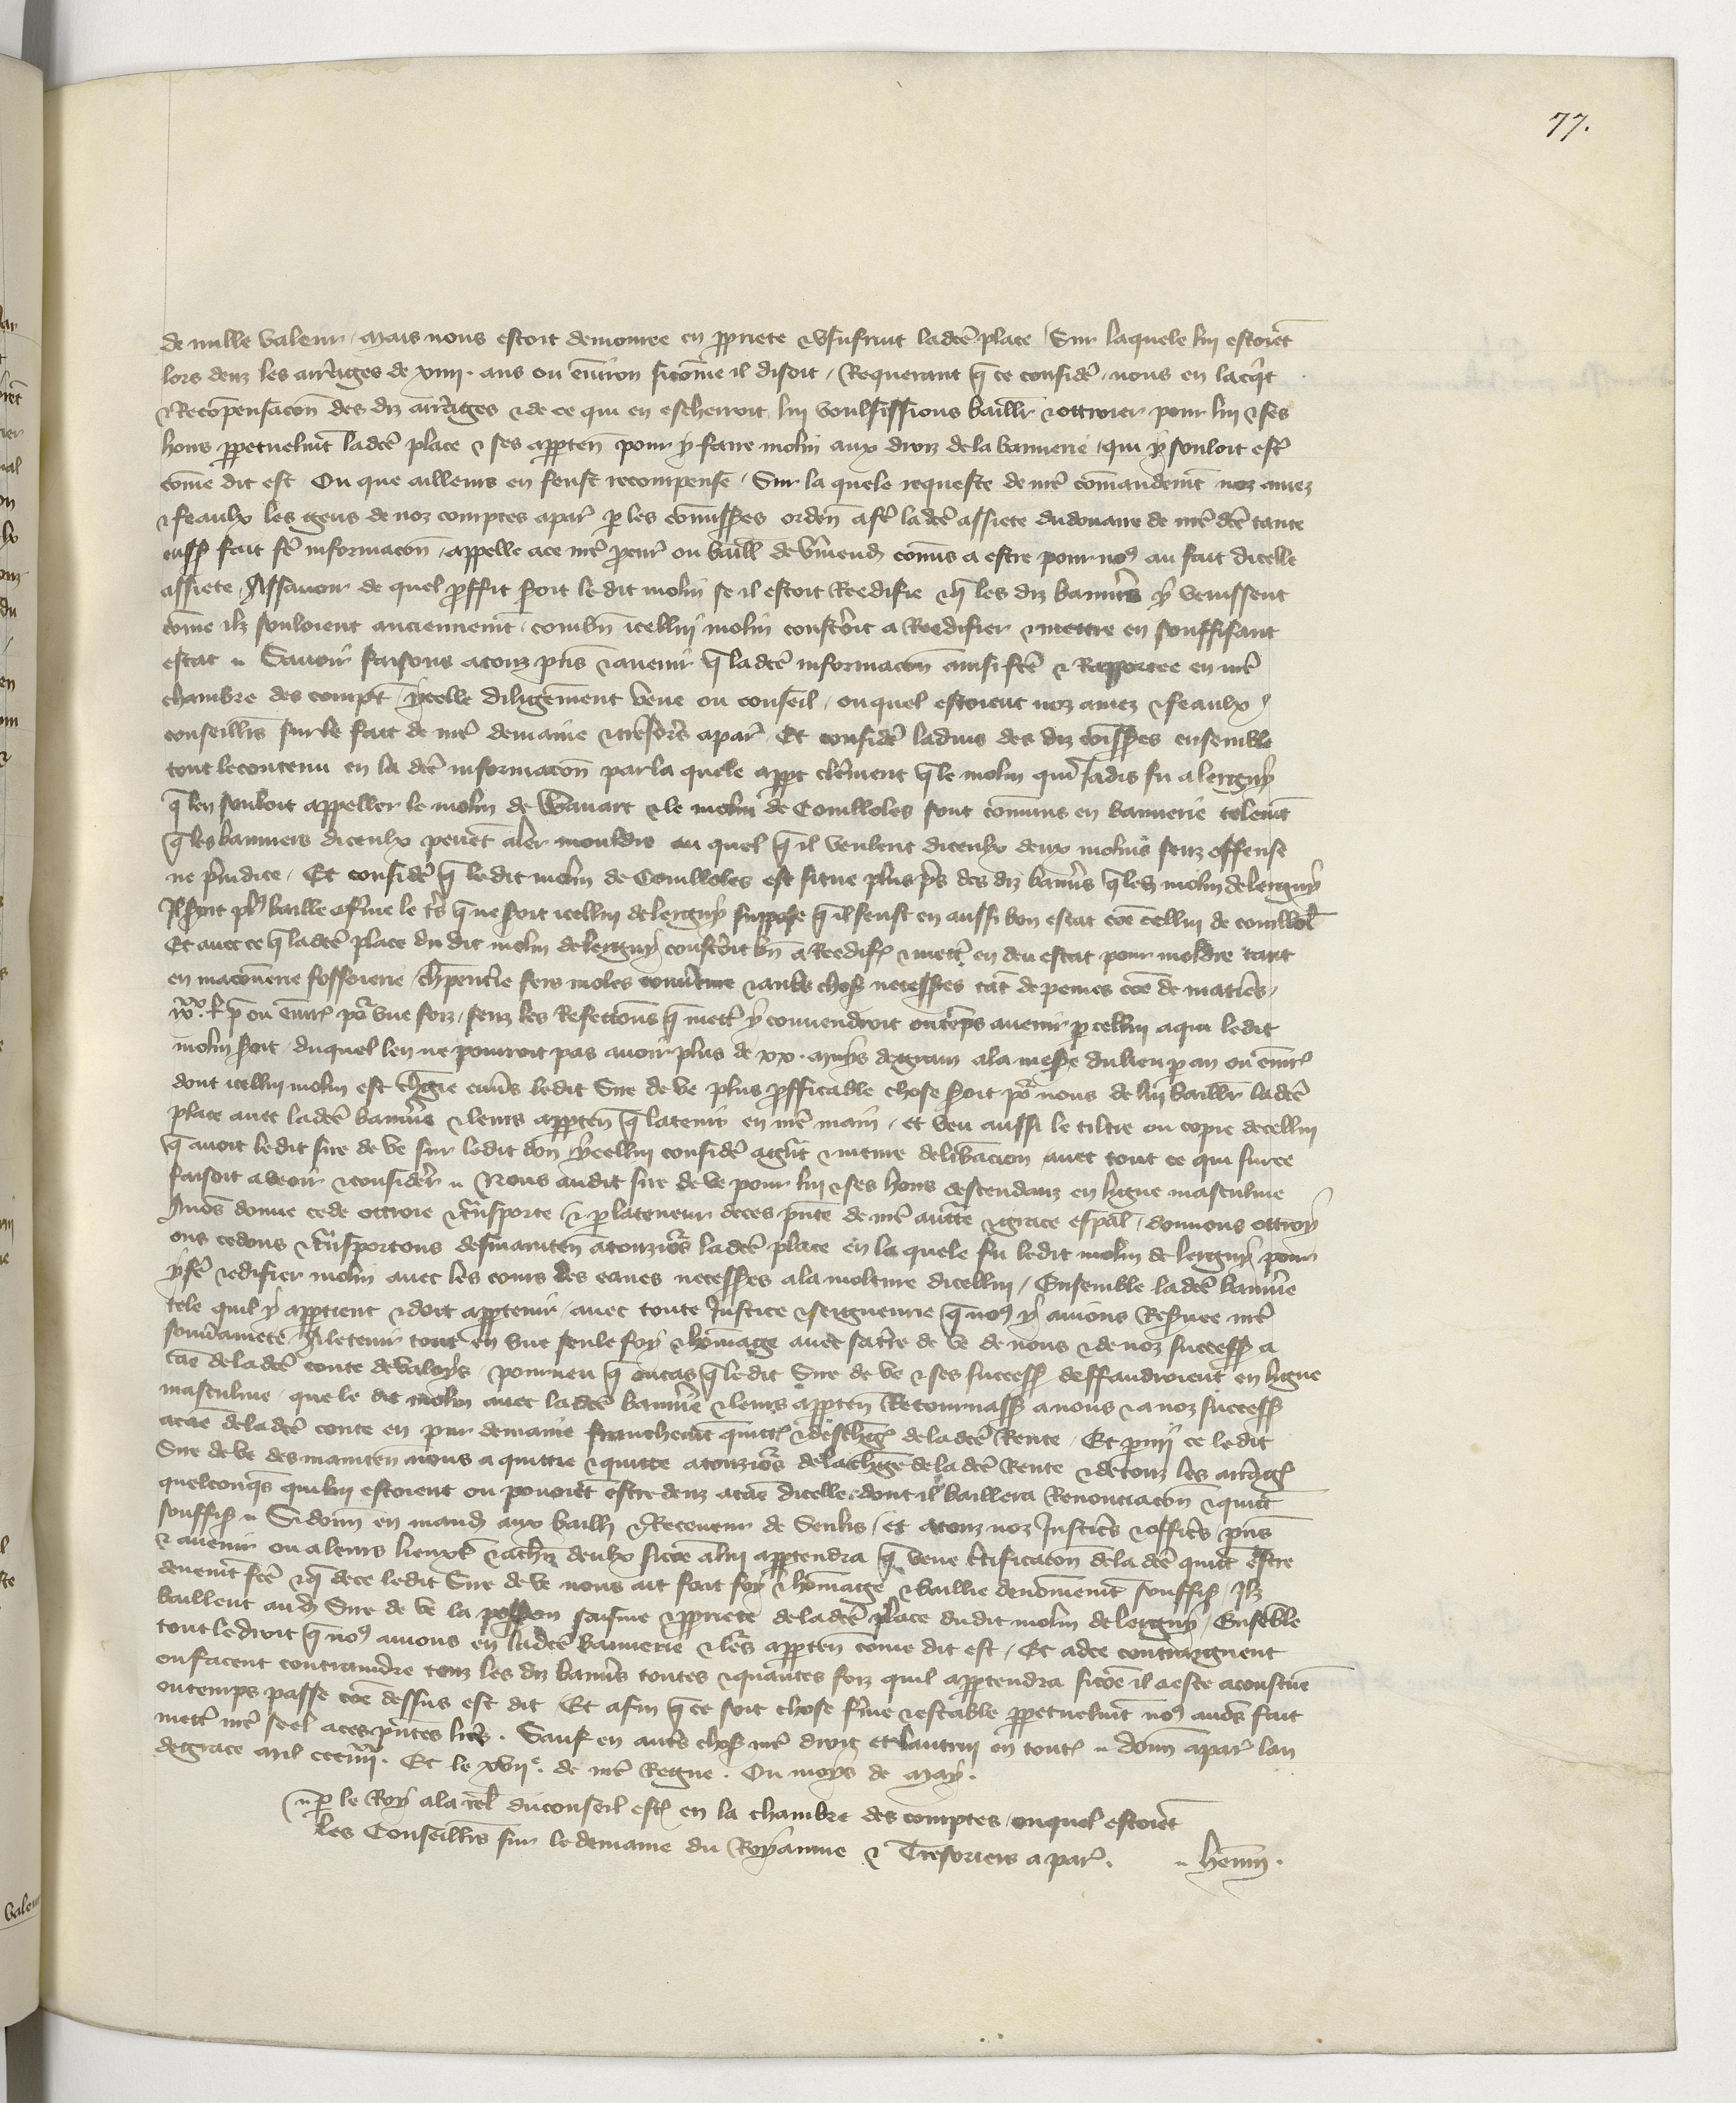 77.
de nulle valeur / mais nous estoit demouree en ppriete & usufruit ladce place / Sur laquele lui estoiet
lors deuz les arrages de xiiii. ans ou environ sicome il disoit / Requerant q ce consideré / nous en lacqt
& Recompensacon des diz arrages & de ce qui en escherroit lui voulsissions bailler & ottroier pour lui & ses
hoirs ppetuelmt ladce place & ses apptenn pour y faire molin aux droiz de la bannerie / qui y souloit est
come dit est Ou que ailleurs en feust recompense / Sur la quele requeste de nre comandemt noz amez
& feaulx les gens de noz comptes a par p les comisses orden a fe ladce assiete du douaire de nre dce tante
eussent fait fe informacon / appelle a ce nre pcur ou baill de Vmend comis a estre pour nos au fait dicelle
assiete / Assavoir de quel proffit soit le dit molin se il estoit Reedifie & q les diz banners y venissent
come ilz souloient anciennemt / combn icellui molin cousteroit a Reedifier & mettre en souffisant
estat // Savoir faisons a touz pns & avenir q ladce informacon ainsi fce & Rapportee en nre
chambre des compt / ycelle diligemment veue ou conseil / ouquel estoient noz amez & feaulx
conseillrs sur le fait de nre demaine & tresors a par Et consideré ladvis des diz comisses ensemble
tout le contenu en la dce informacon par la quele appt clerement q le molin qui Jadis fu a lerguy
q len souloit appeller le molin de Wauart & le molin de Coulloles sont comuns en bannerie telemt
q les banniers diceulx peuet aler mouldre au quel q il veulent diceulx deux molins senz offense
ne pjudice / Et consideré q le dit molin de Coulloles est situe plus ps des diz banners q led molin de lerguy
Il soit plus baille a fme le ts q ne soit icellui de lerguy suppose q il feust en aussi bon estat coe cellui de coullol
Et avec ce q ladce place du dit molin de lerguy cousteroit bn a Reedif & mett en deu estat pour moldre tant
en maconnerie fosseierie / chpenterie fers moles couvture & aultres choses necesses tat de peines coe de matiers /
l p ou envir por une foiz / senz les Refections q mett y convendroit ou temps avenir p cellui a qui le dit
molin soit / duquel len ne pourroit pas avoir plus de xx. muys de grain a la mesure du lieu p an ou envir
dont icellui molin est charge envers ledit Sire de Ve plus proffitable chose soit por nous de lui bailler ladce
place avec ladce bannie & leurs apptenn q la tenir en nre main / et veu aussi le tiltre ou copie de cellui
q avoit ledit sire de ve sur ledit don ycellui consideré a grant & meure deliberacion avec tout ce qui sur ce
faisoit a veoir & considerer // Nous audit sire de Ve pour lui & ses hoirs descendanz en ligne masculine
Avons donne cede ottroie & transporte / & p la teneur de ces pntes de nre auttte & grace espal / donnons ottroy
ons cedons & transportons desmaintenn a touziors ladce place en la quele fu ledit molin de lerguy / pour
y fe & edifier molin avec les cours des eaues necesses a la molture dicellui / Ensemble ladce bannie
tele quil y apptient & doit apptenir / avec toute Justice & seigneurie q nos y avions Reservee nre
souvrainete / A le tenir tout en une seule foy & homage avec sa terre de Ve de nous & de noz success a
cae de la dce conte de Valoys / pourveu q ou cas q ledit Sire de Ve & ses success deffaudroient en ligne
masculine / que le dit molin avec ladce bannie & leurs apptenn Retournass a nous & a noz success
a cae de la dce conte en pur demaine franchemt quitt & deschge de la dce Rente / Et pmi ce le dit
Sire de Ve desmaintenn nous a quitte & quitte a touziors de la chge de la dce Rente & de touz les arrages
quelconqs qui lui estoient ou pouoiet estre deuz a cae dicelle dont il baillera Renonciacon & quitt
souffis // Si donn en mand aux baill & Receveur de Senlis / et a touz noz Justics & offics / pns
& avenir ou a leurs lieuxten & a chun deulx sicoe a lui apptendra q veue certificacon de la dce quitt estre
deuemt fce & q de ce ledit Sire de Ve nous ait fait foy & homage & baillie denomemt souffis / Ilz
baillent aud Sire de Ve la possion saisine & ppriete de ladce place dudit molin de lerguy / Ensemble
tout le droit q nos avons en ladce bannerie & les apptenn come dit est / Et ad ce contraignent
ou facent contraindre touz les diz banners toutes & quantes foiz quil apptendra sicoe il a este acoustume
ou temps passe coe dessus est dit Et afin q ce soit chose ferme & estable ppetuelmt nos avons fait
mett nre seel a ces pntes lres . Sauf en autres choses nre droit et lautrui en toutes // donn a par lan
de grace mil ccc iiiixx. Et le xvii e. de nre Regne . Ou moys de May.
// p le Roy a la rel du conseil est en la chambre des comptes / ouquel estoiet
les Conseillrs sur le demaine du Royaume & Tresoriers a par . // henin.